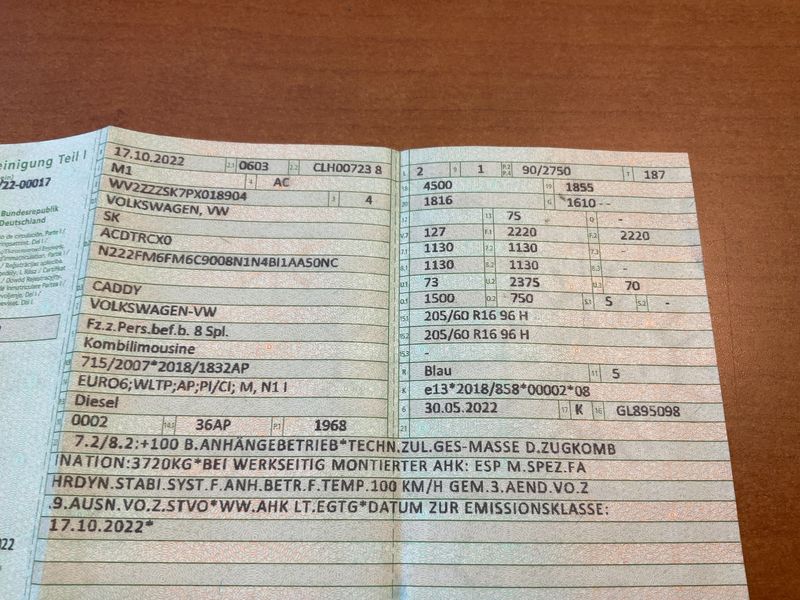 einigung Teil I
/22-00017
Bundesrepublik
Deutschland
022
17.10.2022 2.1 0603 2.2 CLH00723 8
M1 4 AC
WV2ZZZSK7PX018904 3 4
VOLKSWAGEN, VW
SK
ACDTRCX0
N222FM6FM6C9008N1N4BI1AA50NC
CADDY
VOLKSWAGEN-VW
Fz.z.Pers.bef.b. 8 Spl.
Kombilimousine
715/2007*2018/1832AP
EURO6;WLTP;AP;PI/CI; M, N1 I
Diesel
0002 14.1 36AP P.1 1968
L 2 9 1 P.2 P.4 90/2750 T 187
18 4500 19 1855
20 1816 G 1610--
12 - 13 75 Q -
V.7 127 F.1 2220 F.2 2220
7.1 1130 7.2 1130 7.3 -
8.1 1130 8.2 1130 8.3 -
U.1 73 U.2 2375 U.3 70
O.1 1500 O.2 750 S.1 5 S.2 -
15.1 205/60 R16 96 H
15.2 205/60 R16 96 H
15.3 -
R Blau 11 5
K e13*2018/858*00002*08
6 30.05.2022 17 K 16 GL895098
21
7.2/8.2:+100 B.ANHÄNGEBETRIEB*TECHN.ZUL.GES-MASSE D.ZUGKOMB
INATION:3720KG*BEI WERKSEITIG MONTIERTER AHK: ESP M.SPEZ.FA
HRDYN.STABI.SYST.F.ANH.BETR.F.TEMP.100 KM/H GEM.3.AEND.VO.Z
.9.AUSN.VO.Z.STVO*WW.AHK LT.EGTG*DATUM ZUR EMISSIONSKLASSE:
17.10.2022*